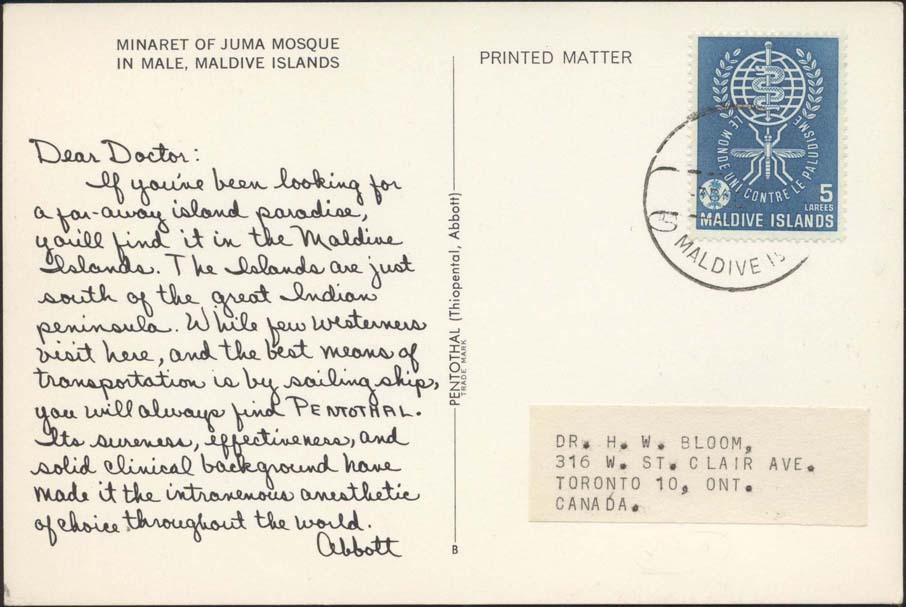 MINARET OF JUMA MOSQUE
IN MALE, MALDIVE ISLANDS
Dear Doctor:
If you've been looking for
a far-away island paradise,
you'll find it in the Maldive
Islands. The Islands are just
south of the great Indian
peninsula. While few westerners
visit here, and the best means of
transportation is by sailing ship,
you will always find PENTOTHAL.
Its sureness, effectiveness, and
solid clinical background have
made it the intravenous anesthetic
of choice throughout the world.
Abbott
PENTOTHAL (Thiopental, Abbott)
TRADE MARK
B
PRINTED MATTER
LE MONDE UNI CONTRE LE PALUDISME
5
LAREES
MALDIVE ISLANDS
MALDIVE IS
DR. H. W. BLOOM,
316 W. ST. CLAIR AVE.
TORONTO 10, ONT.
CANADA.